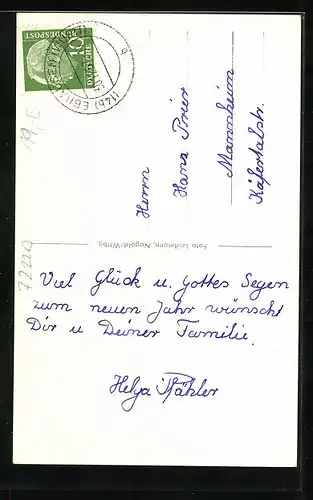 DEUTSCHE
BUNDESPOST
10
(14b) EBHAUSEN
Herrn
Hans Prier
Mannheim
Käfertalstr.
Foto Leidmann, Nagold/Wrtbg.
72220
Viel Glück u. Gottes Segen
zum neuen Jahr wünscht
Dir u Deiner Familie.
Helga Stähler